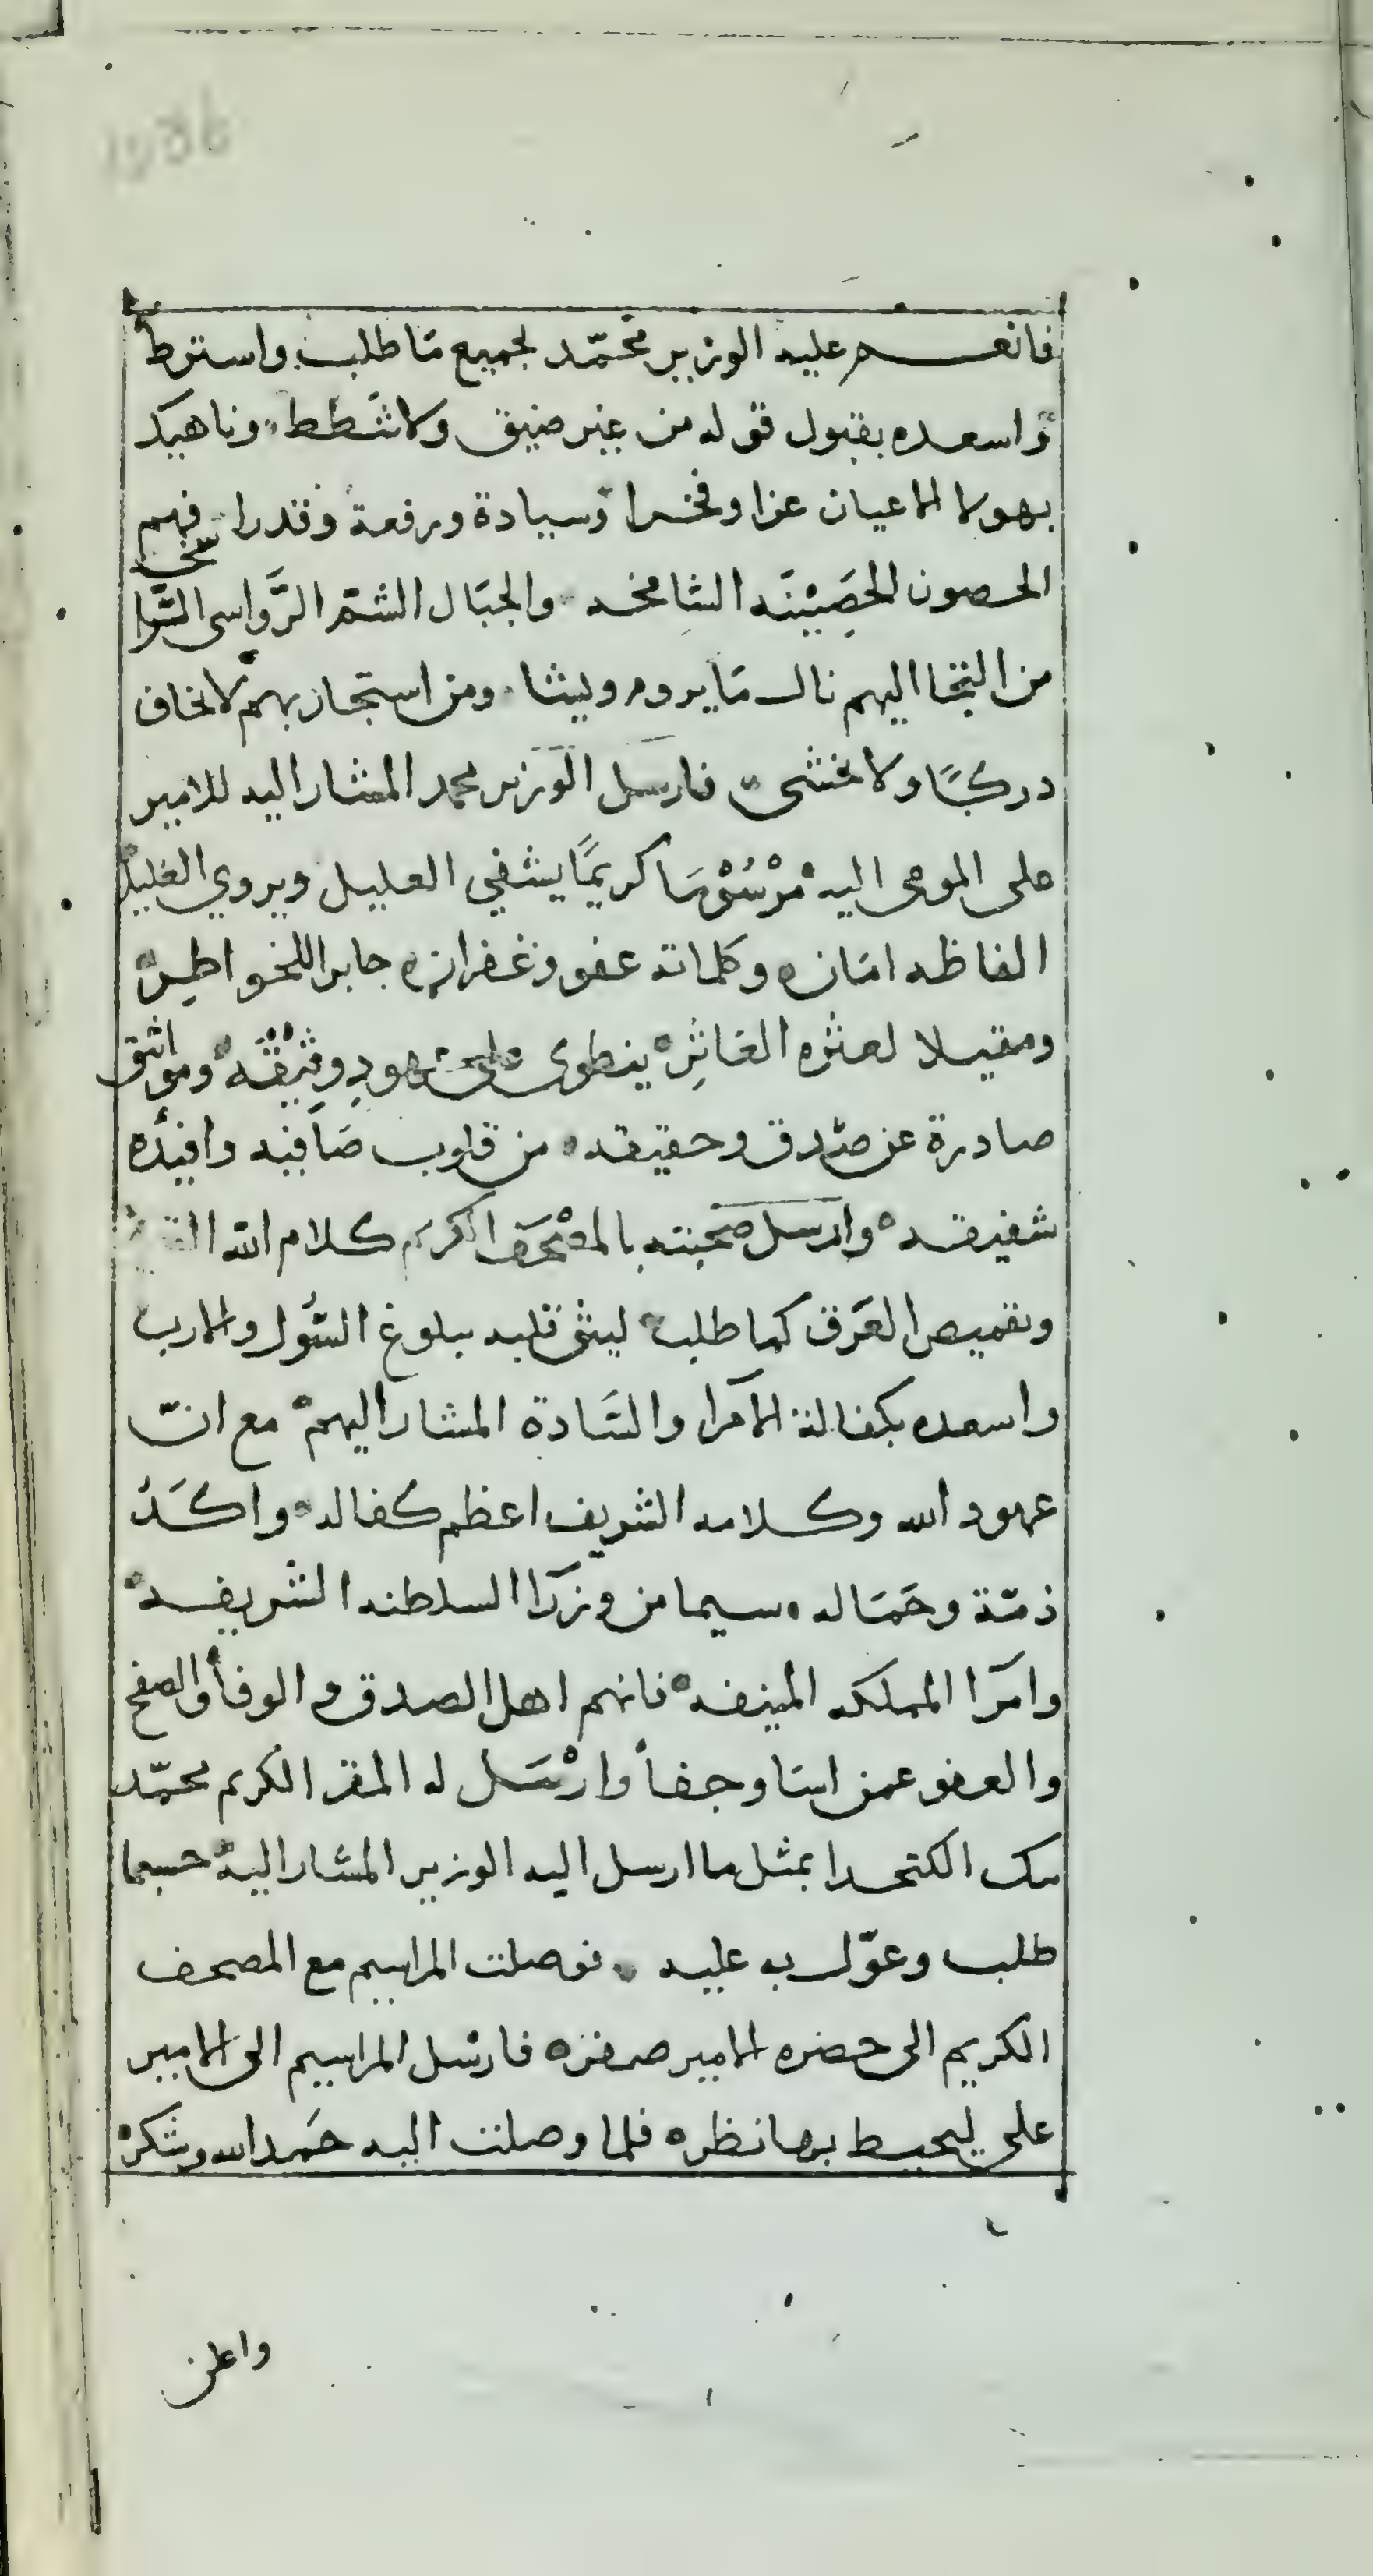 فانعم عليه الوزير محمّد بجميع مَا طلب واسترط
وَاسعده بقبول قوله من غير ضيق ولا شَطط، وناهيك
بهولا الاعيان عزا وفخرا وَسيادة ورفعة وقدرا فهم
الحصون الحَصِيْنَه الشامخه والجبَال الشمّ الرَّواسى الشّوامخى
من التجا اليهم نال مَا يروم ويشا ومن استجار بهم لا يخاف
دركًا ولا يخشى فارسل الوَزير محمد المشار اليه للامير
على المومى اليه مَرْسُوْمَا كريمًا يشفي العليل ويروي الغليل
الفاظه امَان وكلماته عفو وغفران جابرا للخواطر
ومقيلا لعثره العَاثِر ينطوى على عهودٍ وثيْقَه ومواثق
صادرة عن صِدق وحقيقه من قلوب صَافيه وافيده
شفيقه وارسل صحبته بالمصْحَف الكريم كلام الله
وبقميص العَرَق كما طلب ليثق قلبه ببلوغ السُّول والارب
واسعده بكفالة الامَرا والسَّادة المشار اليهم مع انّ
عهود الله وكلامه الشريف اعظم كفاله واكَدُ
ذمّة وحَمَاله سيما من وزَرَا السلطنه الشريفه
وامَرا المملكه المنيفه فانهم اهل الصدق والوفا والصفح
والعفو عمن اسَا وجفا وارْسَل له المقر الكريم محمّد
بيك الكتخدا بمثل ما ارسل اليه الوزير المشار اليه حسبما
طلب وعوّل به عليه فوصلت المراسيم مع المصحف
الكريم الى حضره الامير صفره فارسْل المراسيم الى الامير
على ليحيط بها نظره فلما وصلت اليه حَمد الله وشكر
واعلن